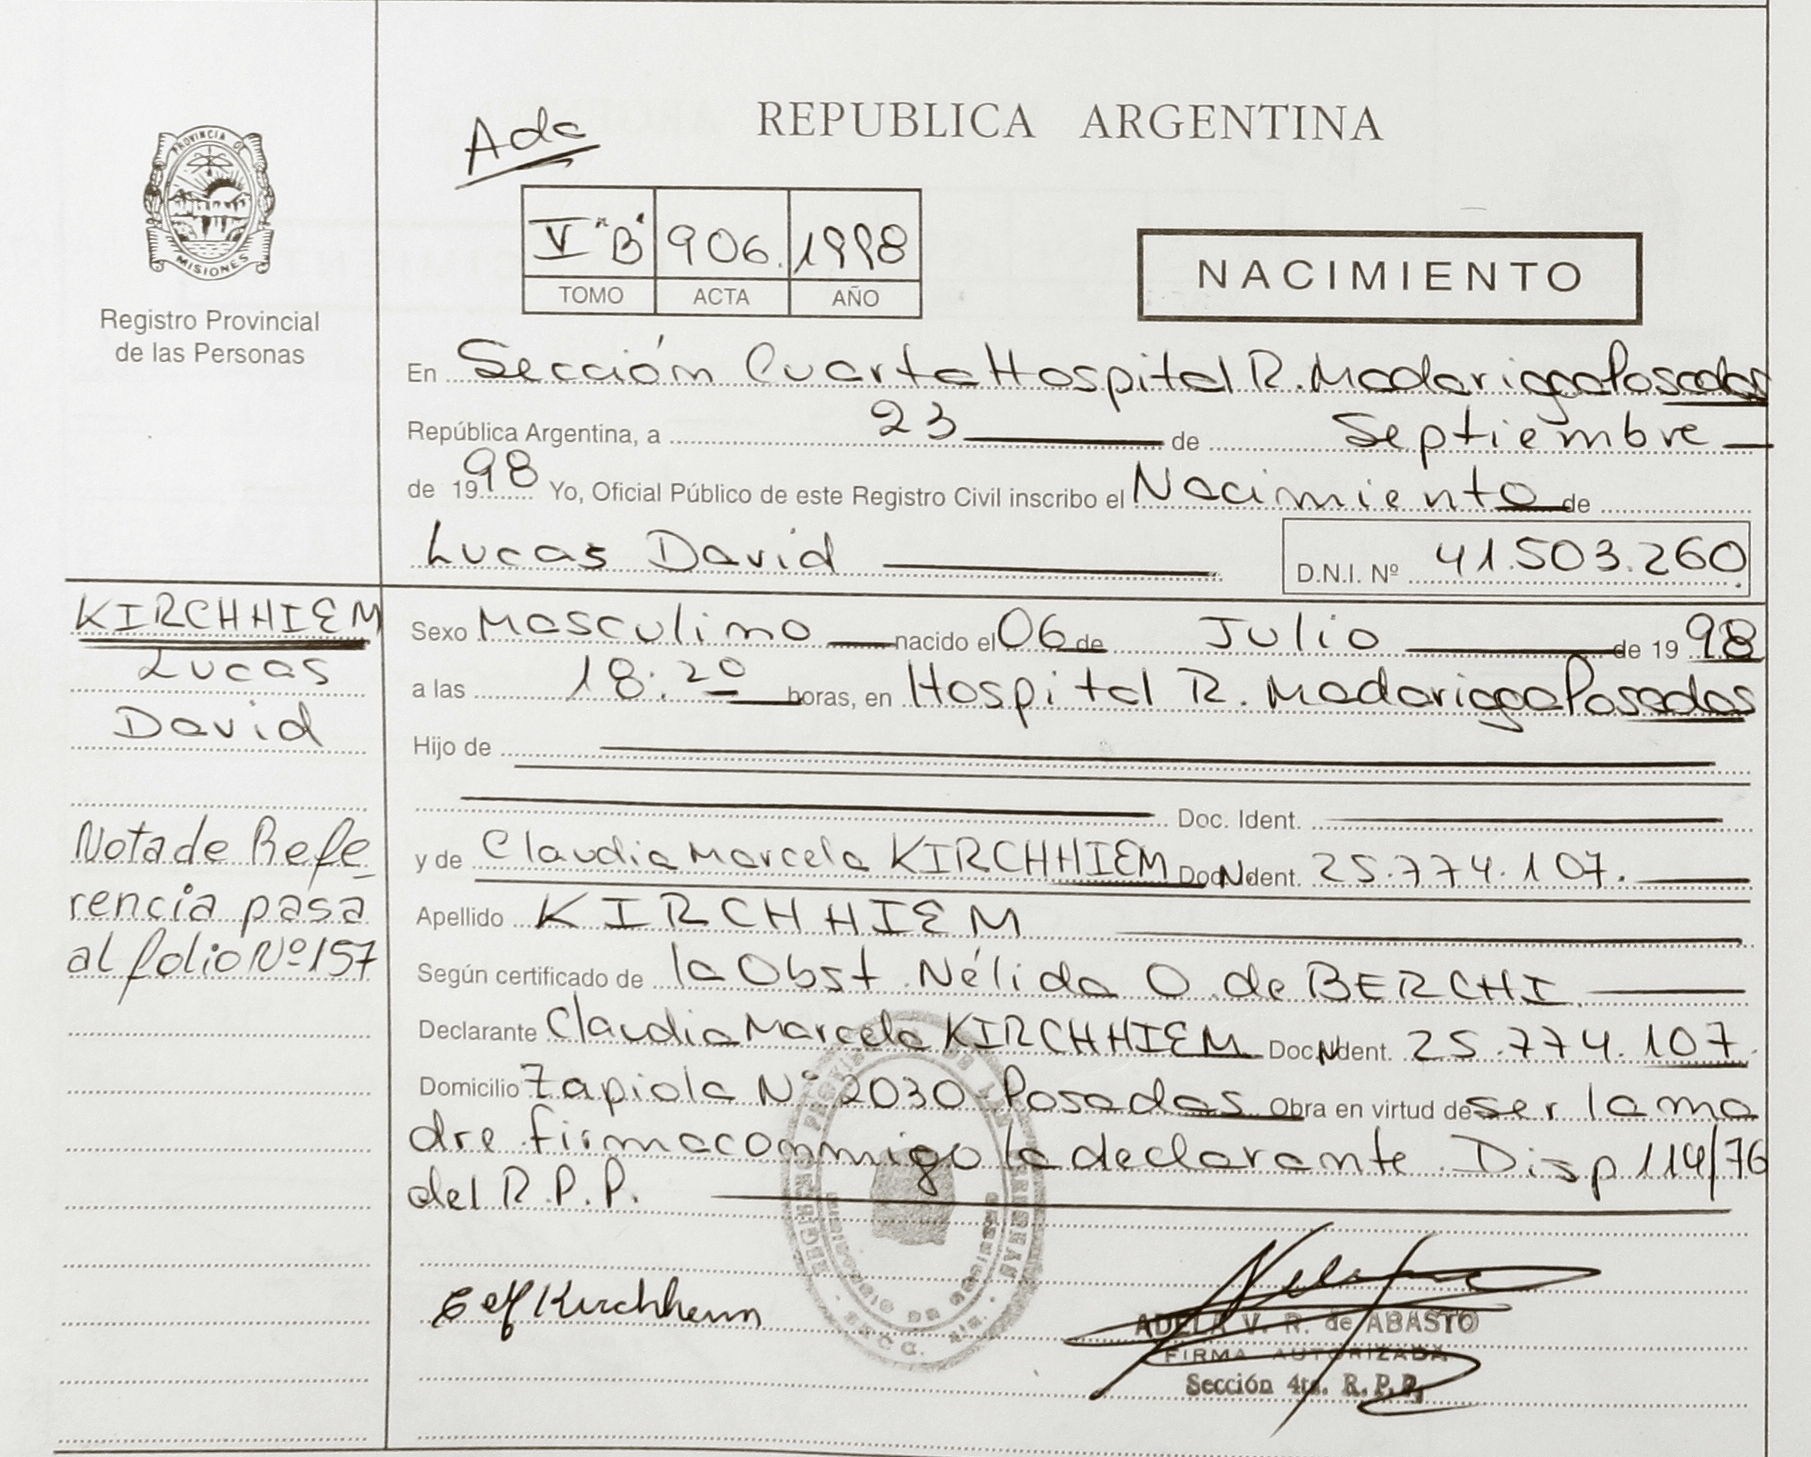 REPUBLICA ARGENTINA
PROVINCIA DE
MISIONES
Registro Provincial
de las Personas
V "B" 906. 1998
TOMO ACTA AÑO
NACIMIENTO
En Sección Cuarta Hospital R. Madariaga Posadas
República Argentina, a 23 de Septiembre
de 1998 Yo, Oficial Público de este Registro Civil inscribo el Nacimiento de
Lucas David D.N.I. Nº 41.503.260
KIRCHHIEM
Lucas
David
Nota de Refe
rencia pasa
al folio Nº 157
Sexo Masculino nacido el 06 de Julio de 1998
a las 18:20 horas, en Hospital R. Madariaga Posadas
Hijo de
Doc. Ident.
y de Claudia Marcela KIRCHHIEM Doc. N Ident. 25.774.107.
Apellido KIRCHHIEM
Según certificado de la Obst. Nélida O. de BERCHI
Declarante Claudia Marcela KIRCHHIEM Doc. N Ident. 25.774.107.
Domicilio Zapiola Nº 2030 Posadas Obra en virtud de ser la ma
dre firma conmigo la declarante. Disp 114/76
del R.P.P.
Kirchhiem
ADELA V. R. de ABASTO
FIRMA AUTORIZADA
Sección 4ta. R.P.P.